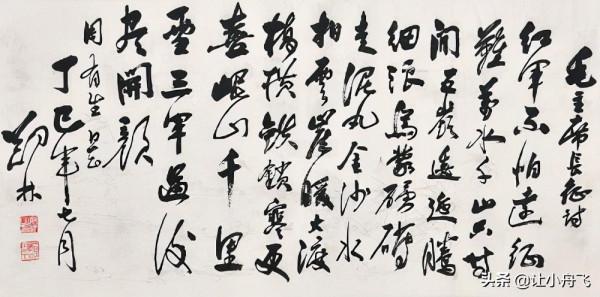 毛主席长征詩
红军不怕遠征
難萬水千山只等
閒五嶺逶迤騰
細浪烏蒙磅礴
走泥丸金沙水
拍雲崖暖大渡
橋橫鐵鎖寒更
喜岷山千里
雪三軍過後
盡開顏
周有生
丁巳年七月
林
头条 @让小舟飞